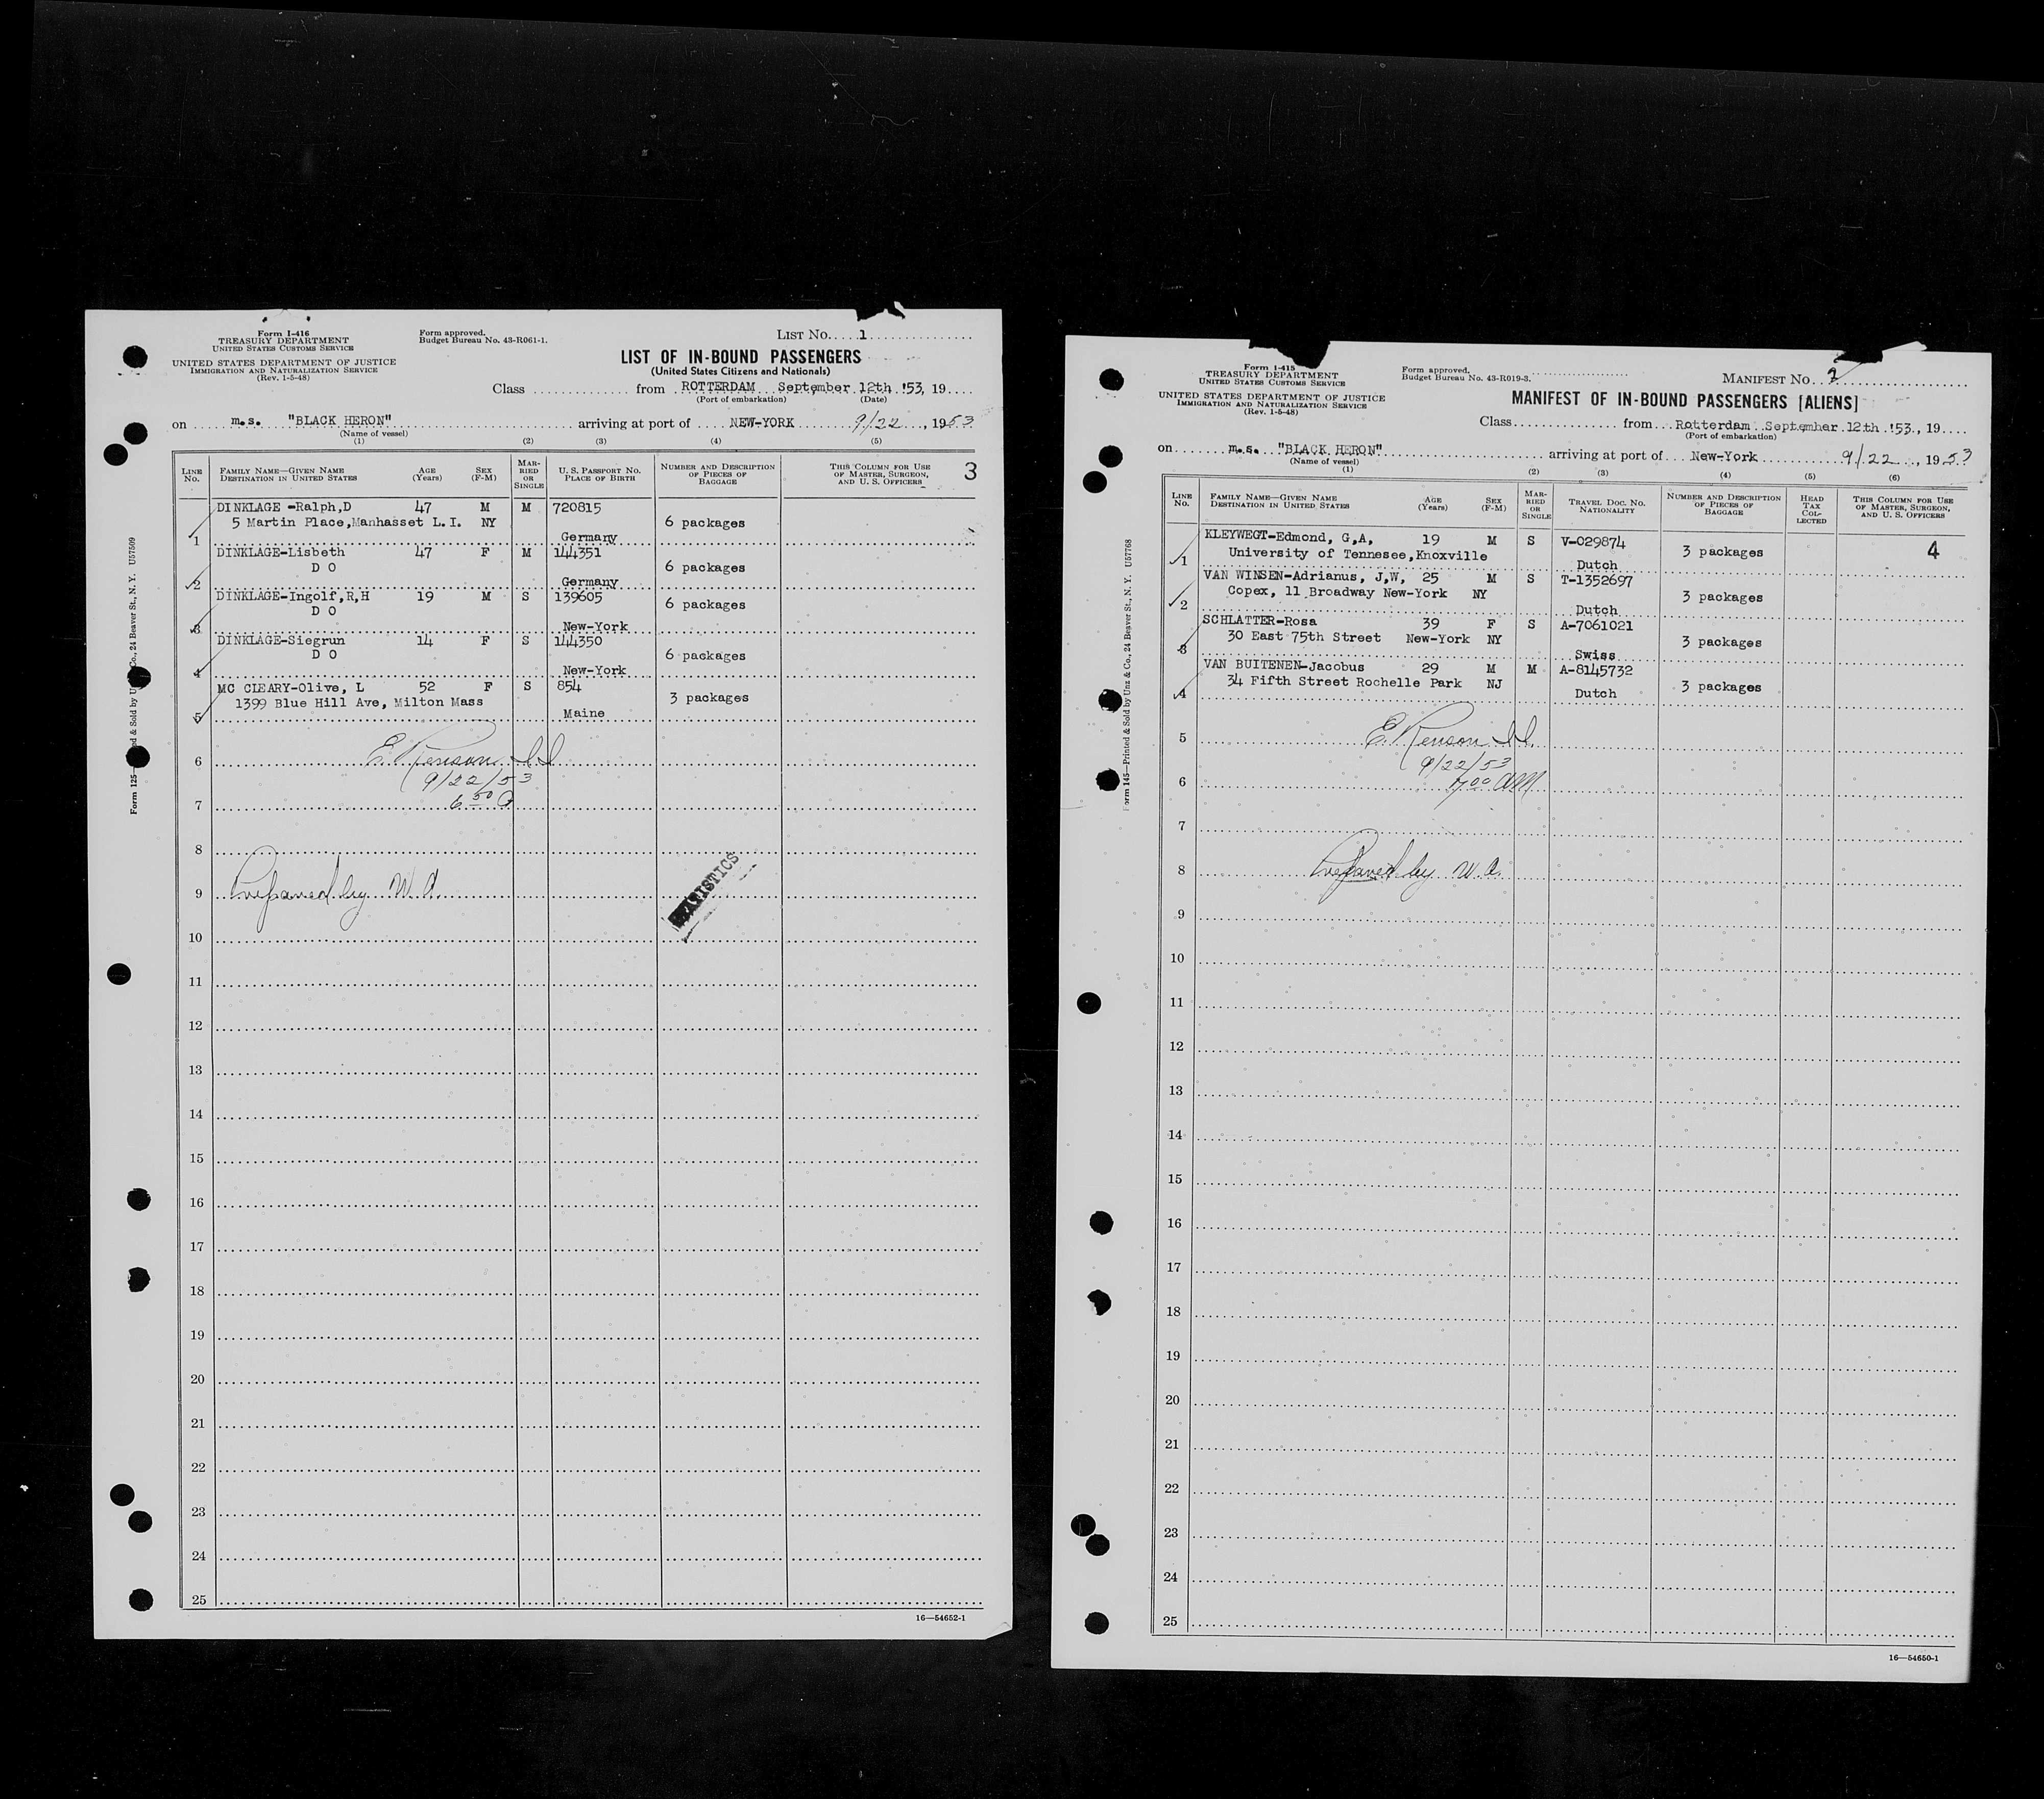 Form I-416
TREASURY DEPARTMENT
UNITED STATES CUSTOMS SERVICE
UNITED STATES DEPARTMENT OF JUSTICE
IMMIGRATION AND NATURALIZATION SERVICE
(Rev. 1-5-48)
Form approved.
Budget Bureau No. 43-R061-1.
LIST No. 1
LIST OF IN-BOUND PASSENGERS
(United States Citizens and Nationals)
Class from ROTTERDAM September 12th '53, 19
(Port of embarkation) (Date)
on m.s. "BLACK HERON" arriving at port of NEW-YORK 9/22, 1953
(Name of vessel)
(1) (2) (3) (4) (5)
LINE No. FAMILY NAME—GIVEN NAME DESTINATION IN UNITED STATES AGE (Years) SEX (F-M) MARRIED OR SINGLE U. S. PASSPORT NO. PLACE OF BIRTH NUMBER AND DESCRIPTION OF PIECES OF BAGGAGE THIS COLUMN FOR USE OF MASTER, SURGEON, AND U. S. OFFICERS 3
DINKLAGE -Ralph,D 47 M M 720815
5 Martin Place,Manhasset L.I. NY 6 packages
1 Germany
DINKLAGE-Lisbeth 47 F M 144351
D O 6 packages
2 Germany
DINKLAGE-Ingolf,R,H 19 M S 139605
D O 6 packages
3 New-York
DINKLAGE-Siegrun 14 F S 144350
D O 6 packages
4 New-York
MC CLEARY-Olive, L 52 F S 854
1399 Blue Hill Ave, Milton Mass 3 packages
5 Maine
6 E. Renson I.I.
9/22/53
7 6 50 A
8
9 Prepared by W.A.
STATISTICS
10
11
12
13
14
15
16
17
18
19
20
21
22
23
24
25
16—54652-1
Form 125— ed & Sold by U Co., 24 Beaver St., N. Y. U57509
Form I-415
TREASURY DEPARTMENT
UNITED STATES CUSTOMS SERVICE
UNITED STATES DEPARTMENT OF JUSTICE
IMMIGRATION AND NATURALIZATION SERVICE
(Rev. 1-5-48)
Form approved.
Budget Bureau No. 43-R019-3.
MANIFEST No. 2
MANIFEST OF IN-BOUND PASSENGERS [ALIENS]
Class from Rotterdam September 12th '53, 19
(Port of embarkation)
on m.s. "BLACK HERON" arriving at port of New-York 9/22, 1953
(Name of vessel)
(1) (2) (3) (4) (5) (6)
LINE No. FAMILY NAME—GIVEN NAME DESTINATION IN UNITED STATES AGE (Years) SEX (F-M) MARRIED OR SINGLE TRAVEL DOC. NO. NATIONALITY NUMBER AND DESCRIPTION OF PIECES OF BAGGAGE HEAD TAX COLLECTED THIS COLUMN FOR USE OF MASTER, SURGEON, AND U. S. OFFICERS
KLEYWEGT-Edmond, G,A, 19 M S V-029874
University of Tennesee,Knoxville 3 packages 4
1 Dutch
VAN WINSEN-Adrianus, J,W, 25 M S T-1352697
Copex, 11 Broadway New-York NY 3 packages
2 Dutch
SCHLATTER-Rosa 39 F S A-7061021
30 East 75th Street New-York NY 3 packages
3 Swiss
VAN BUITENEN-Jacobus 29 M M A-8145732
34 Fifth Street Rochelle Park NJ 3 packages
4 Dutch
5 E. Renson I.I.
9/22/53
6 7 00 AM
7
8 Prepared by W.A.
9
10
11
12
13
14
15
16
17
18
19
20
21
22
23
24
25
16—54650-1
Form 145—Printed & Sold by Unz & Co., 24 Beaver St., N. Y. U57768